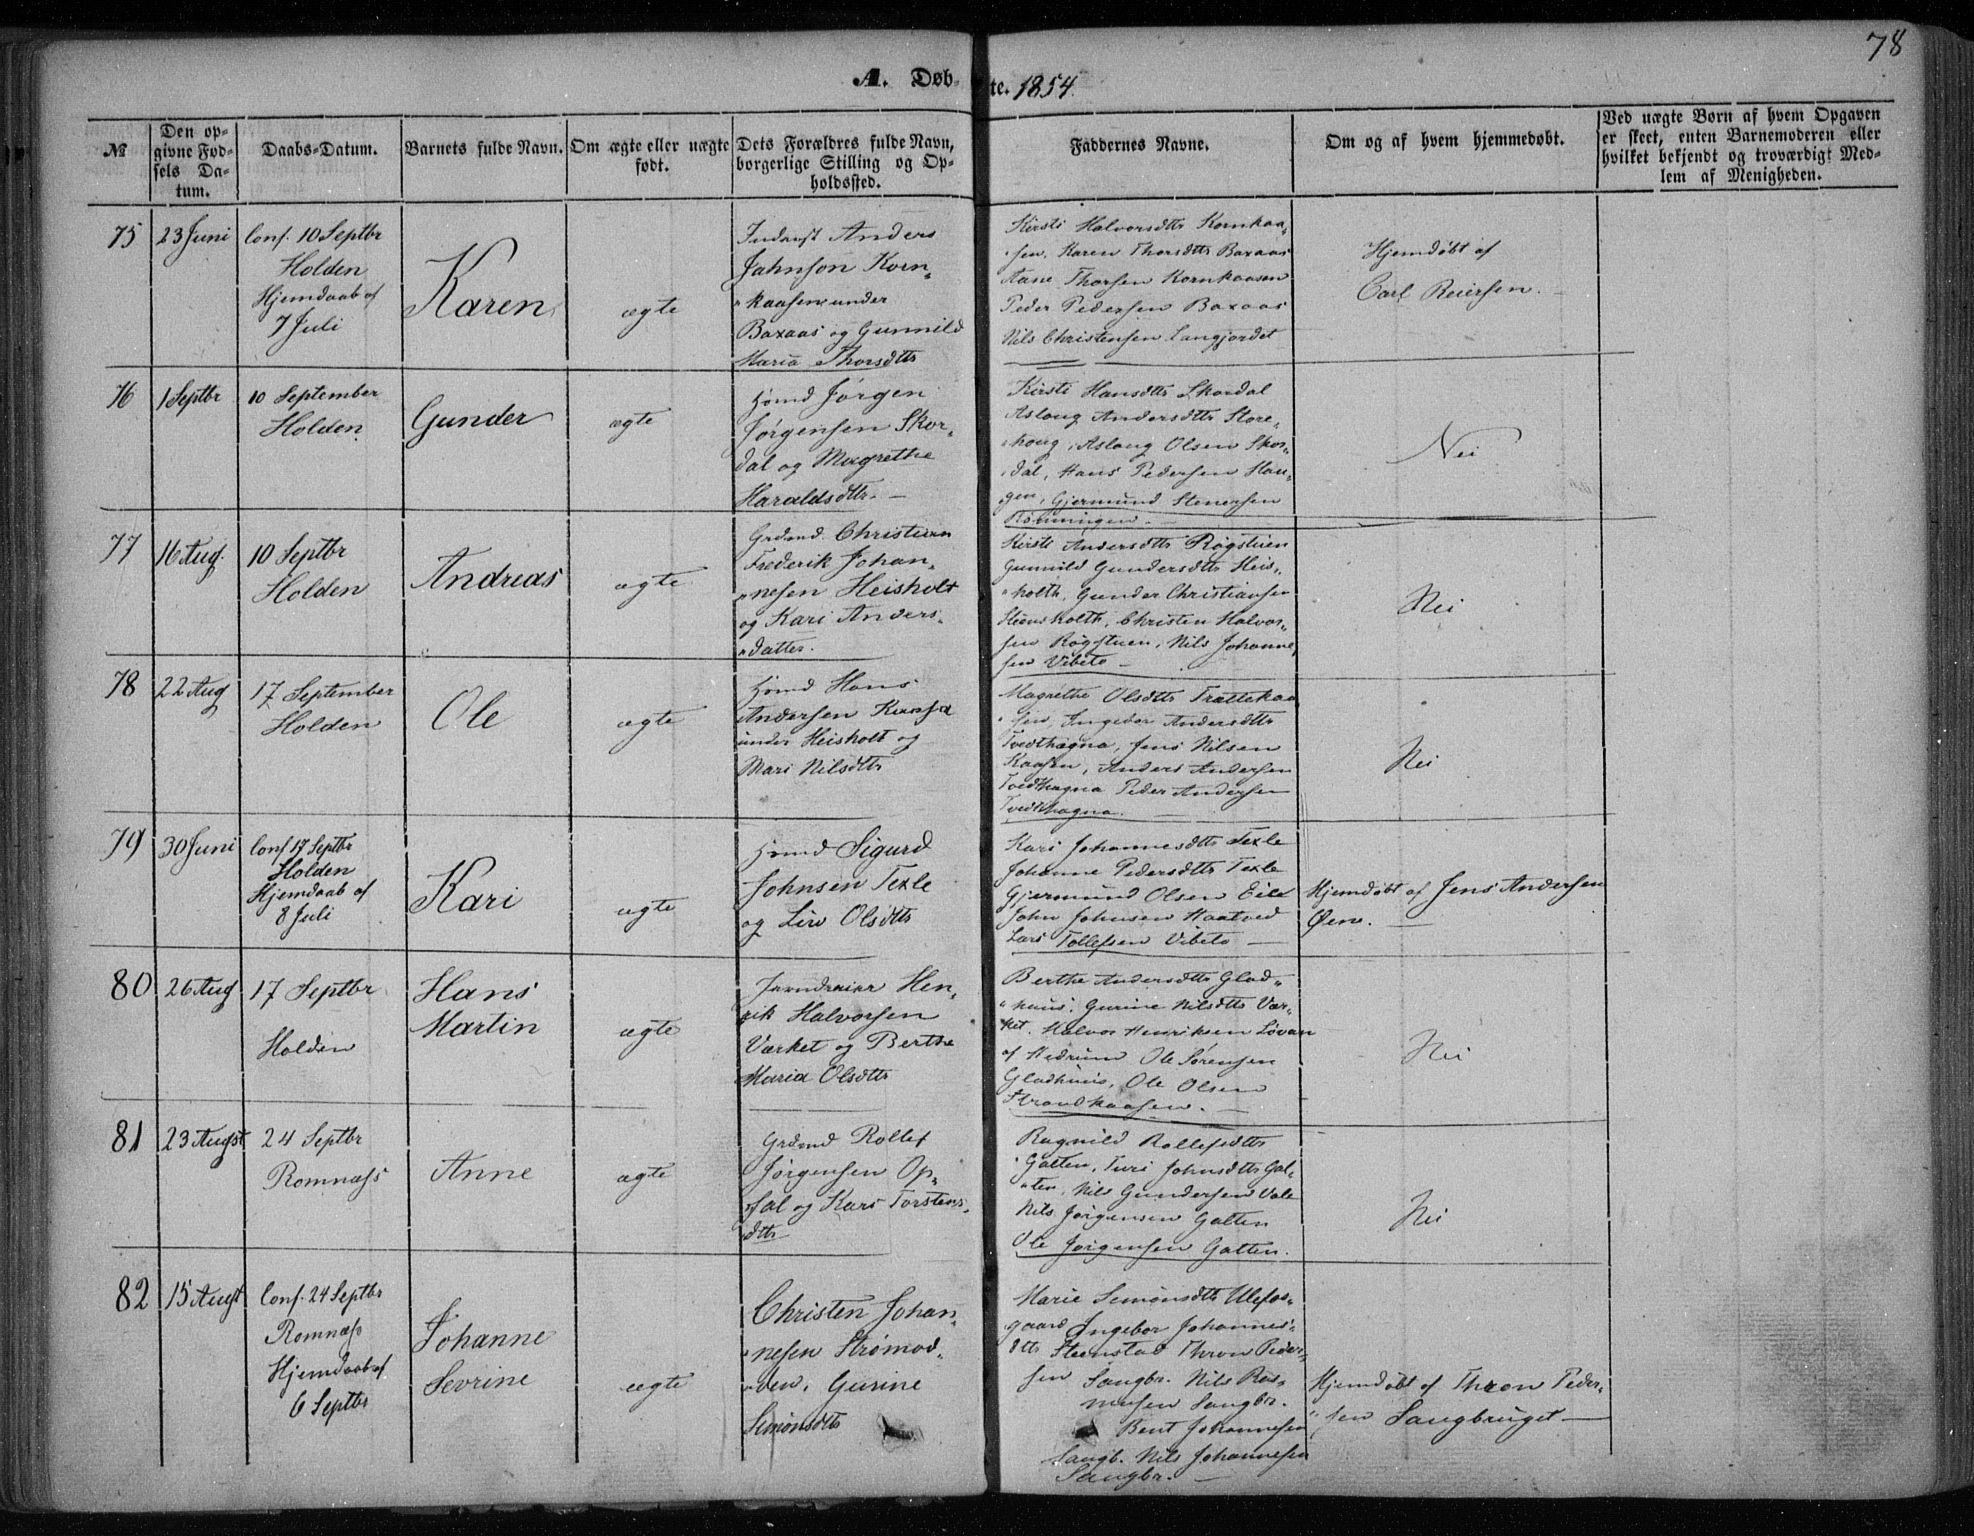 78
A. Døbte. 1854
№
Den opgivne Fødsels Datum.
Daabs-Datum.
Barnets fulde Navn.
Om ægte eller uægte født.
Dets Forældres fulde Navn, borgerlige Stilling og Opholdssted.
Faddernes Navne.
Om og af hvem hjemmedøbt.
Ved uægte Børn af hvem Opgaven er skeet, enten Barnemoderen eller hvilket bekjendt og troværdigt Medlem af Menigheden.
75
23 Juni
Conf. 10 Septbr
Holden
Hjemdaab af
7 Juli
Karen
ægte
Anders
Jahnson Korn„
„kaasen under
Baxaas og Gunnild
Maria Thorsdttr
Kirsti Halvorsdttr Kornkaa„
„sen, Karen Thorsdttr Baxaas
Aane Thorsen Kornkaasen
Peder Pedersen Baxaas
Nils Christensen Langjordet
Hjemdøbt af
Carl Reiersen.
76
1 Septbr
10 September
Holden
Gunder
ægte
Hsmd Jørgen
Jørgensen Skor„
dal og Magrethe
Haraldsdttr. —
Kirsti Hansdttr Skordal
Aslaug Andersdttr Store„
„houg, Aslaug Olsen Skor„
„dal, Hans Pedersen Hau„
gen, Gjermund Stenersen
Rønningen. —
Nei
77
16 Aug.
10 Septbr
Holden
Andreas
ægte
Grdmd. Christian
Frederik Johan„
„nesen Heisholt
og Kari Anders„
„datter.
Kirsti Andersdttr Røgstuen
Gunnild Gundersdttr Heis„
„holth, Gunder Christiansen
holth, Christen Halvor„
sen Røgstuen, Nils Johanne„
sen Vibeto —
Nei
78
22 Aug
17 September
Holden
Ole
ægte
Hsmd Hans
Andersen Kaasa
under Heisholt og
Mari Nilsdttr
Magrethe Olsdttr Trættekaa
„sen, Ingebor Andersdttr
Tvedthagna, Jens Nilsen
Kaasen, Anders Andersen
Tvedthagna Peder Andersen
Tvedthagna.
Nei
79
30 Juni
Conf 17 Septbr
Holden
Hjemdaab af
8 Juli
Kari
ægte
Hsmd Sigurd
Johnsen Texle
og Liv Olsdttr
Kari Johannesdttr Texle
Johanne Pedersdttr Texle
Gjermund Olsen Eile
John Johnsen Haatved
Lars Tollefsen Vibeto —
Hjemdøbt af Jens Andersen
Øen. —
80
26 Aug
17 Septbr
Holden
Hans
Martin
ægte
Jerndreier Hen„
rik Halvorsen
Værket og Berthe
Maria Olsdttr
Berthe Andersdttr Glad„
„huus, Gurine Nilsdttr Vær„
ket. Halvor Henriksen Løvan
af Hedrum Ole Sørensen
Gladhuus, Ole Olsen
Strandkaasen. —
Nei
81
23 Augst
24 Septbr
Romnæss
Anne
ægte
Grdmd Rollef
Jørgensen Op„
„sal og Kari Torstens„
„dttr
Ragnild Rollefsdttr
Galten, Turi Johnsdttr Gal„
„ten, Nils Gundersen Vale
Nils Jørgensen Galten
Ole Jørgensen Galten.
Nei
82
15 Augst
Conf. 24 Septbr
Romnæss
Hjemdaab af
6 Septbr
Johanne
Sevrine
ægte
Christen Johan„
„nesen Strømod„
„den, Gurine
Simonsdttr
Marie Simonsdttr Ulefos„
gaard Ingebor Johannes„
dttr Steenstad Thron Peder„
sen Saugbr. Nils Ras„
musen Saugbr.
Bent Johannesen
Saugb. Nils Johannesen
Saugbr. —
Hjemdøbt af Thron Peder„
„sen Saugbruget —